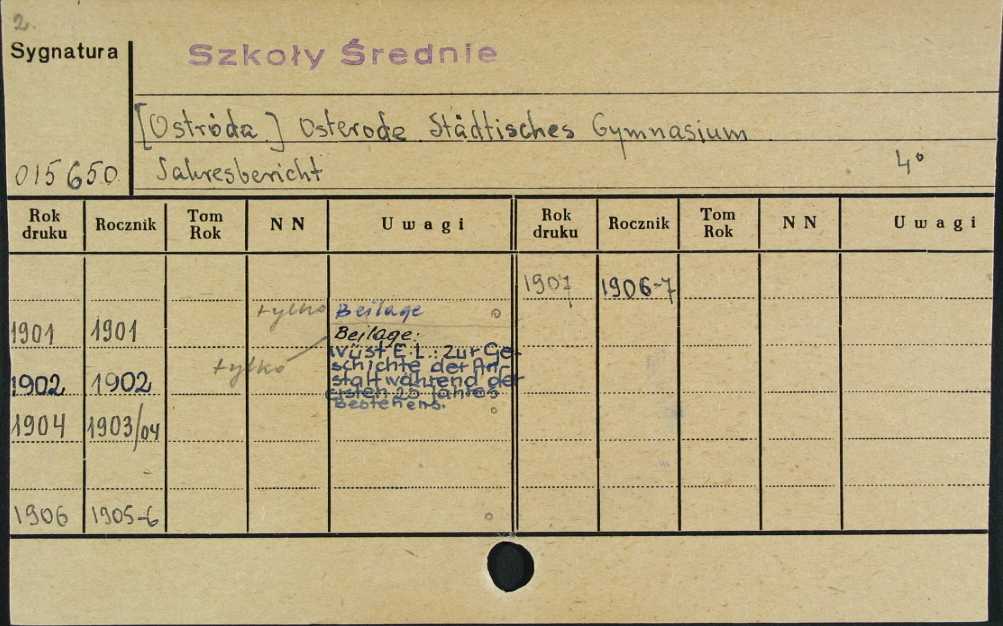 2.
Sygnatura
Szkoły Średnie
[Ostróda] Osterode Städtisches Gymnasium
015650 Jahresbericht 4°
Rok druku Rocznik Tom Rok NN Uwagi Rok druku Rocznik Tom Rok NN Uwagi
1907 1906-7
tylko Beilage
1901 1901
Beilage:
Wüst E.L.: Zur Ge-
schichte der An-
tylko
1902 1902 stalt während der
ersten 25 Jahres
Bestehens.
1904 1903/04
1906 1905-6